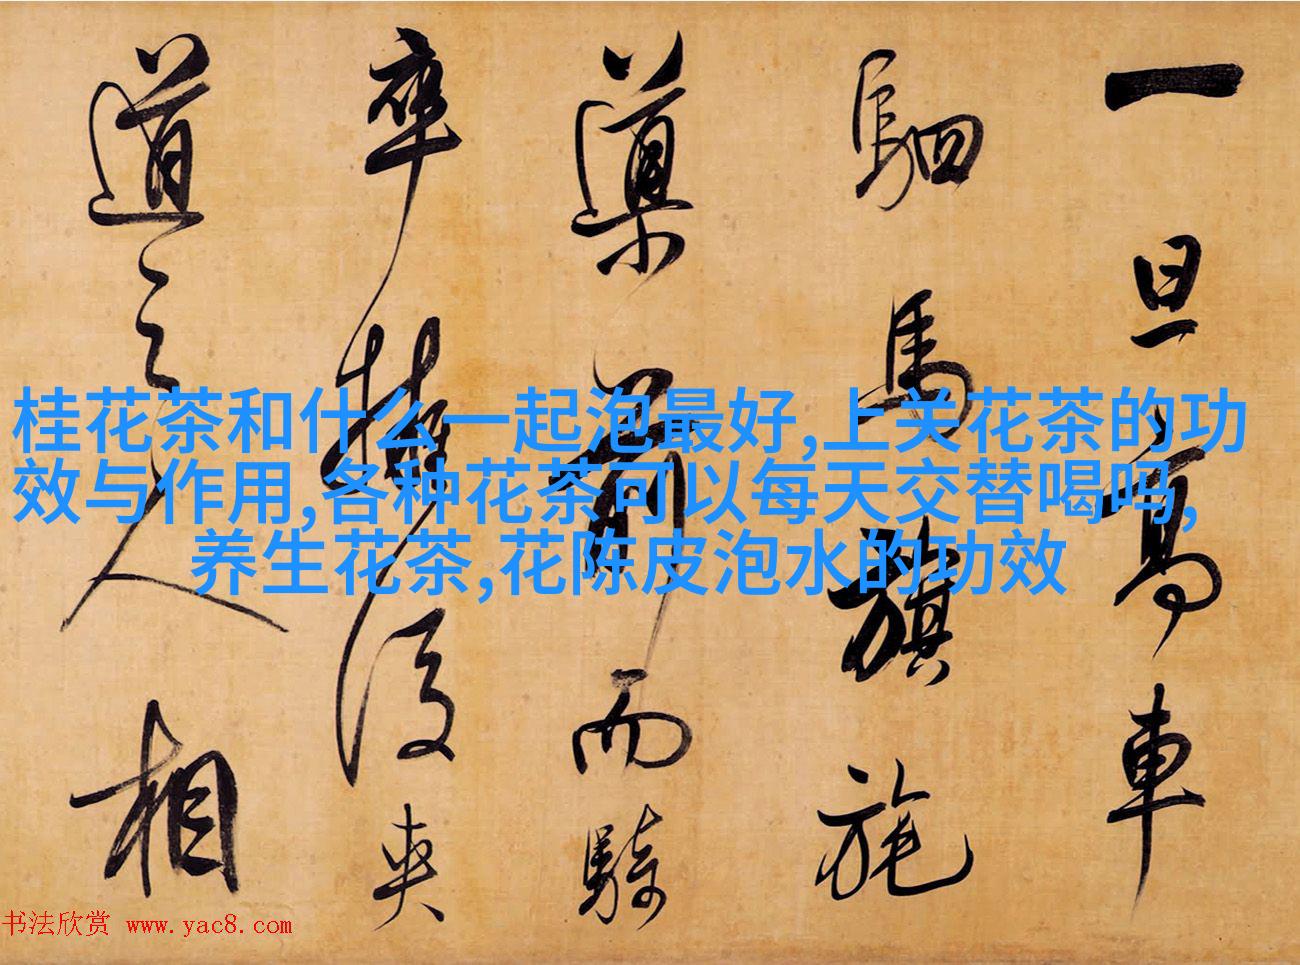 一旦高車
駟馬旗旄
導前而騎
卒擁後夾
道之人相
桂花茶和什么一起泡最好,上关花茶的功
效与作用,各种花茶可以每天交替喝吗,
养生花茶,花陈皮泡水的功效
书法欣赏 www.yac8.com